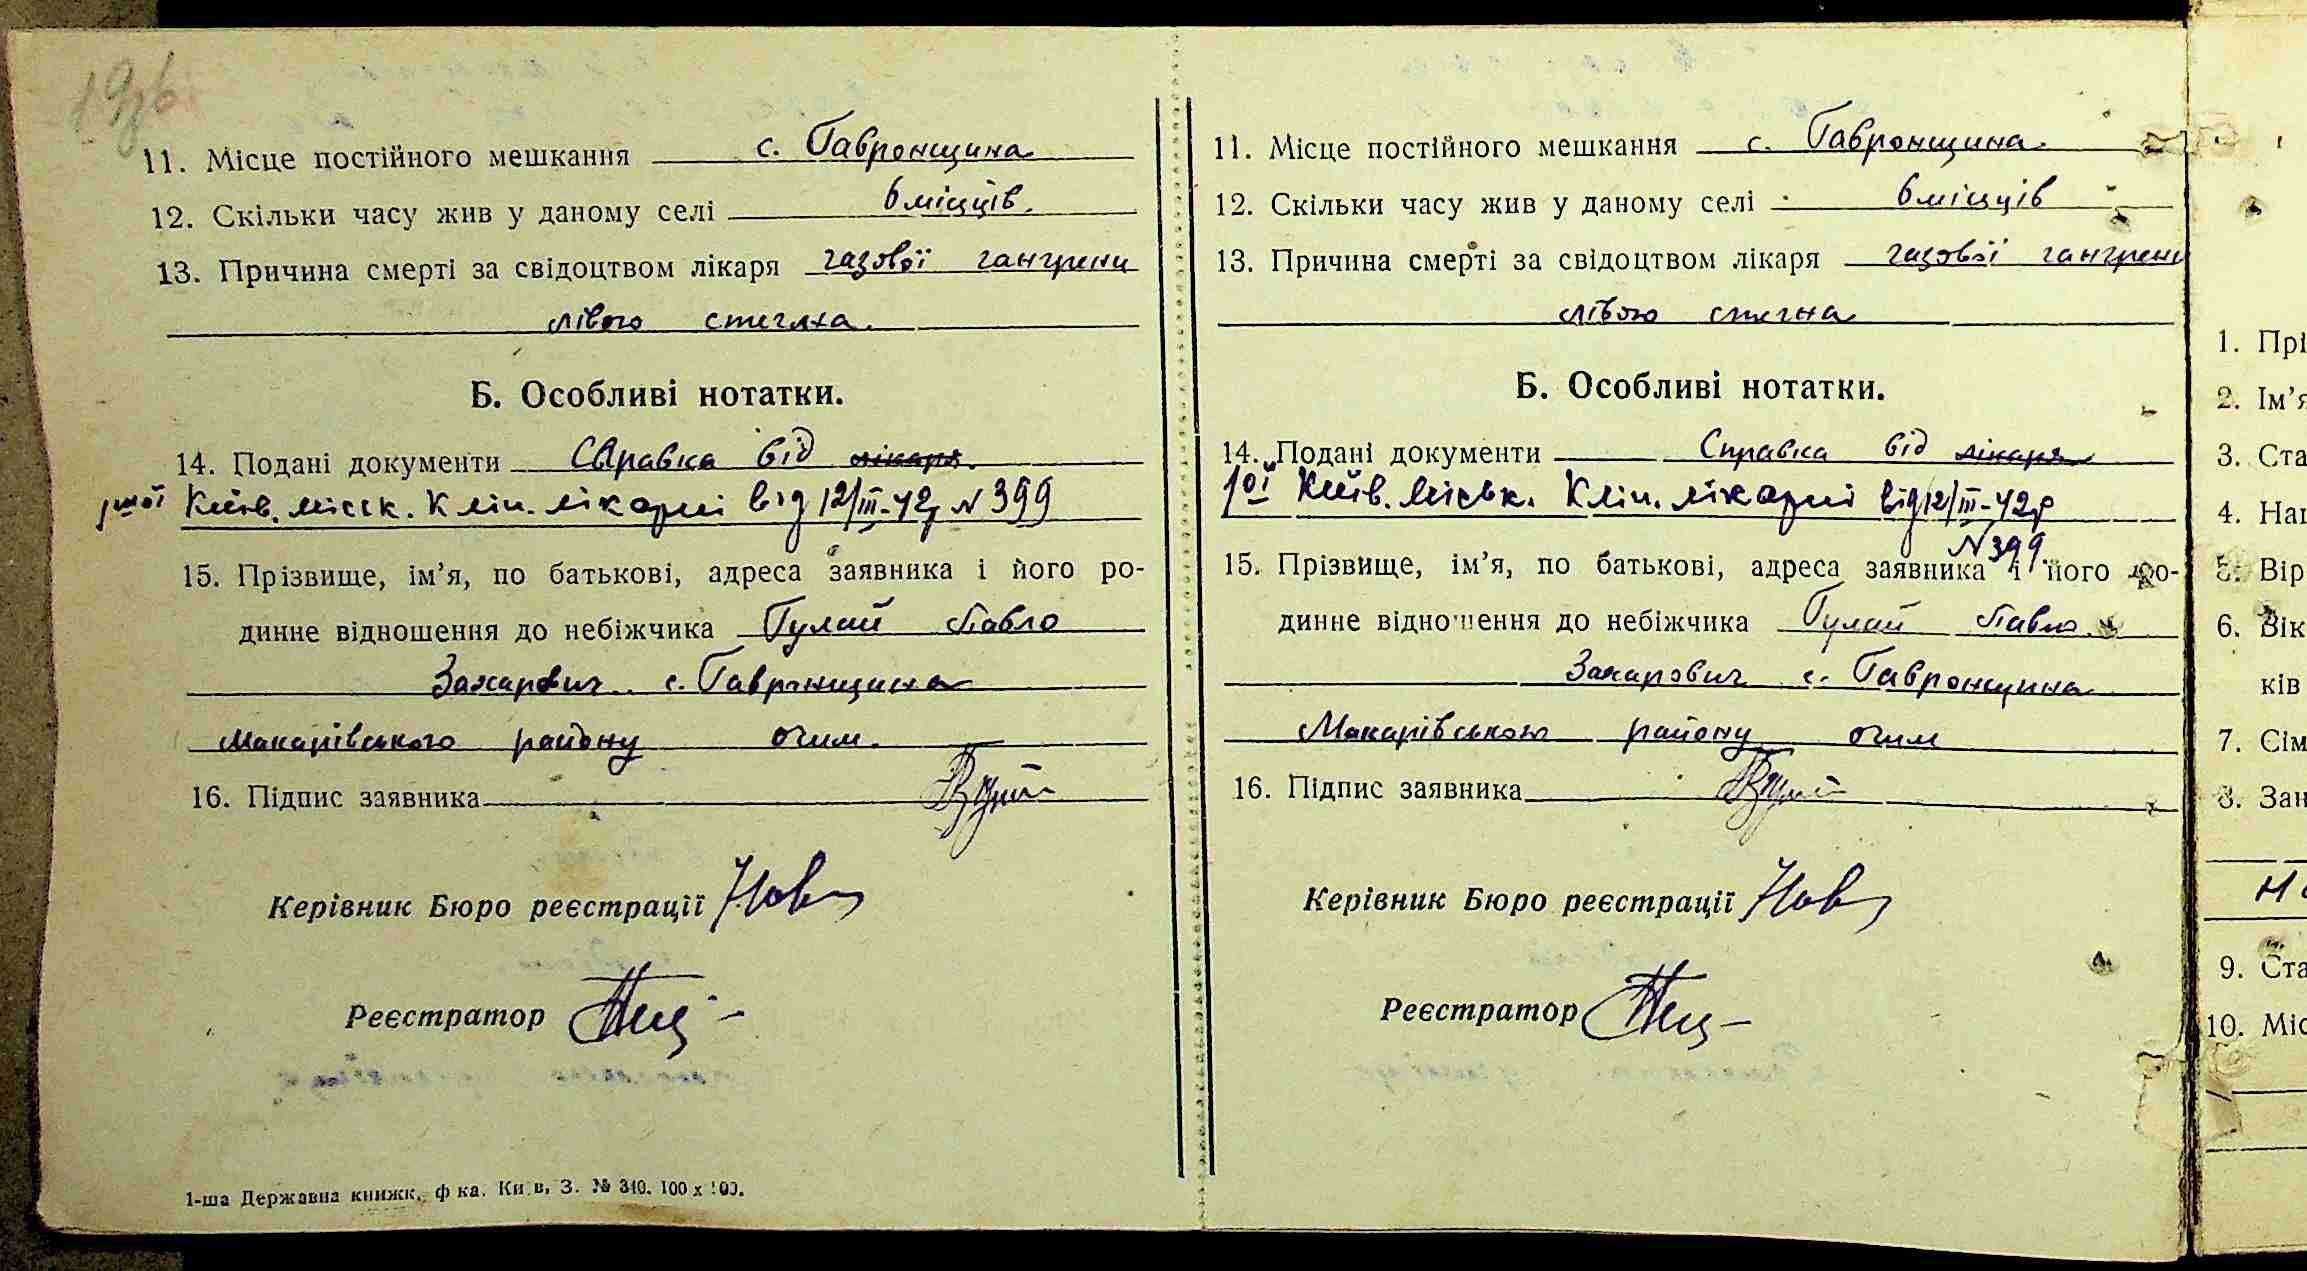 19зв
11. Місце постійного мешкання с. Гавронщина
12. Скільки часу жив у даному селі 6 місяців.
13. Причина смерті за свідоцтвом лікаря газової гангрени
лівого стегна.
Б. Особливі нотатки.
14. Подані документи Справка від лікаря.
Київ. міськ. Клін. лікарні від 12/III-42р N 399
15. Прізвище, ім’я, по батькові, адреса заявника і його ро-
динне відношення до небіжчика Гулай Павло
Захарович с. Гавронщина
Макарівського району отчим.
16. Підпис заявника
Керівник Бюро реєстрації
Реєстратор
1-ша Державна книжк. ф-ка. Київ, З. № 340. 100 х 100.
11. Місце постійного мешкання с. Гавронщина.
12. Скільки часу жив у даному селі 6 місяців
13. Причина смерті за свідоцтвом лікаря газової гангрени
лівого стегна
Б. Особливі нотатки.
14. Подані документи Справка від лікаря
1ої Київ. міськ. Клін. лікарні від 12/III-42р
N 399
15. Прізвище, ім’я, по батькові, адреса заявника і його ро-
динне відношення до небіжчика Гулай Павло
Захарович с. Гавронщина
Макарівського району очим
16. Підпис заявника
Керівник Бюро реєстрації
Реєстратор
1. Прі
2. Ім’я
3. Ста
4. Нац
5. Вір
6. Вік
ків
7. Сім
8. Зан
9. Ста
10. Міс